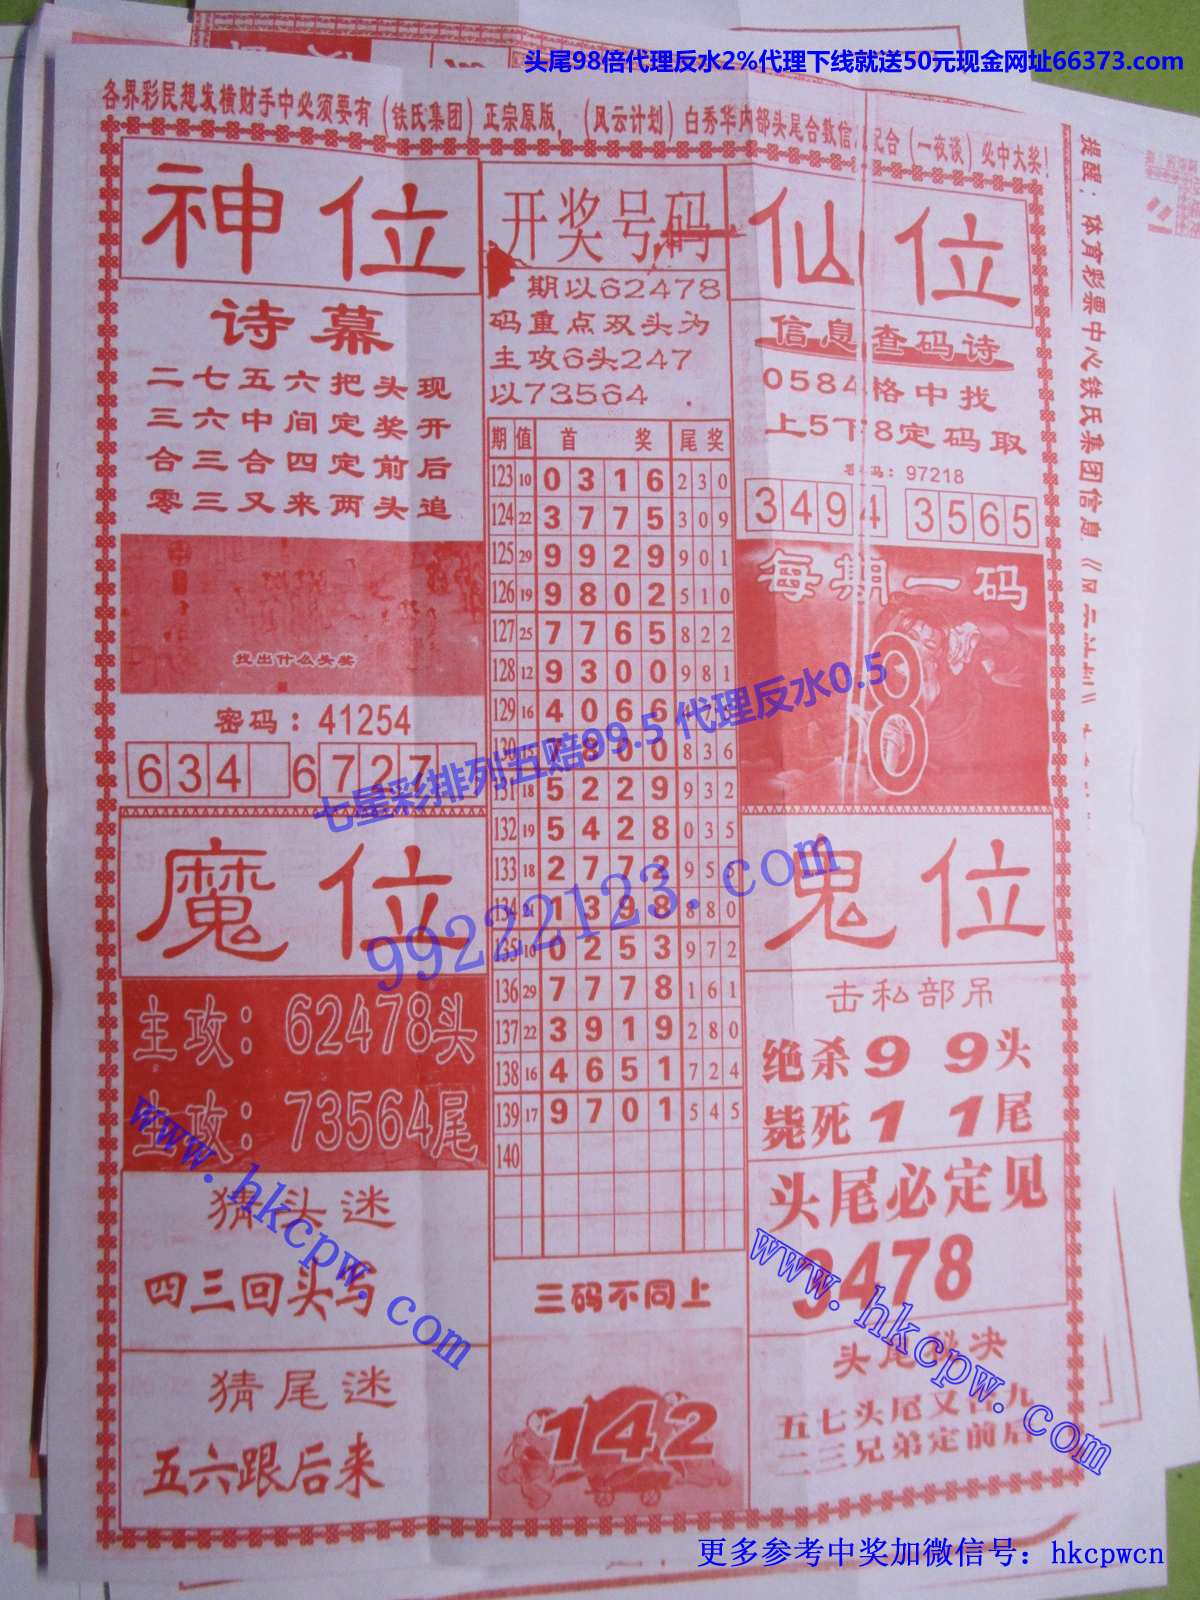 头尾98倍代理反水2%代理下线就送50元现金网址66373.com
各界彩民想发横财手中必须要有（铁氏集团）正宗原版，（风云计划）白秀华内部头尾合数信 配合（一夜谈）必中大奖！
提醒：体育彩票中心铁氏集团信息《
神位
诗幕
二七五六把头现
三六中间定奖开
合三合四定前后
零三又来两头追
找出什么头奖
密码：41254
634 6727
魔位
主攻：62478头
主攻：73564尾
猜头迷
四三回头写
猜尾迷
五六跟后来
开奖号码
期以62478
码重点双头为
主攻6头247
以73564
期 值 首 奖 尾 奖
123 10 0 3 1 6 2 3 0
124 22 3 7 7 5 3 0 9
125 29 9 9 2 9 9 0 1
126 19 9 8 0 2 5 1 0
127 25 7 7 6 5 8 2 2
128 12 9 3 0 0 9 8 1
129 16 4 0 6 6
130 15 7 8 0 0 8 3 6
131 18 5 2 2 9 9 3 2
132 19 5 4 2 8 0 3 5
133 18 2 7 7 2 9 5 5
134 21 1 3 9 8 8 8 0
135 10 0 2 5 3 9 7 2
136 29 7 7 7 8 1 6 1
137 22 3 9 1 9 2 8 0
138 16 4 6 5 1 7 2 4
139 17 9 7 0 1 5 4 5
140
三码不同上
142
仙位
信息查码诗
0584格中找
上5下8定码取
码：97218
3494 3565
每期一码
8
鬼位
击私部吊
绝杀9 9头
毙死1 1尾
头尾必定见
3478
头尾秘决
五七头尾又合九
二三兄弟定前后
七星彩排列五赔99.5 代理反水0.5
99222123.com
www.hkcpw.com
www.hkcpw.com
更多参考中奖加微信号：hkcpwcn